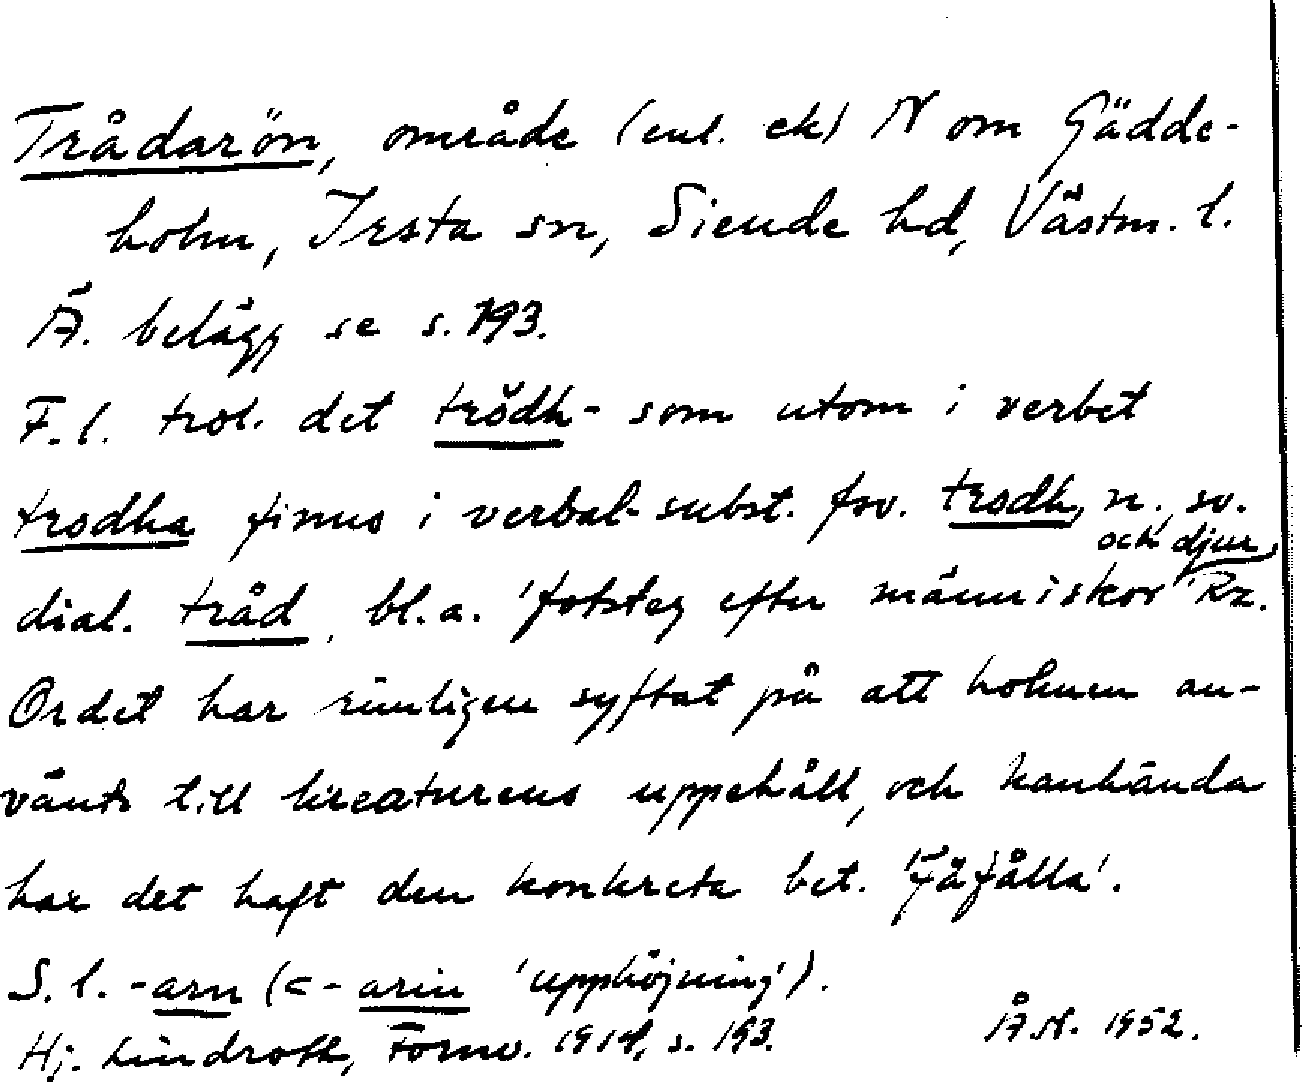 Trådarön, område (enl. ek) N om Gädde-
holm, Irsta sn, Siende hd, Västm. l.
Ä. belägg se s. 193.
F.l. trol. det trŏdh- som utom i verbet
trodha finns i verbal-subst. fsv. trodh, n., sv.
dial. tråd, bl.a. 'fotsteg efter människor och djur' Rz.
Ordet har rimligen syftat på att holmen an-
vänts till kreaturens uppehåll, och kanhända
har det haft den konkreta bet. 'Fäfålla'.
S.l. -arn (< -arin 'upphöjning').
Hj. Lindroth, Fornv. 1914, s. 193. Å.N. 1952.